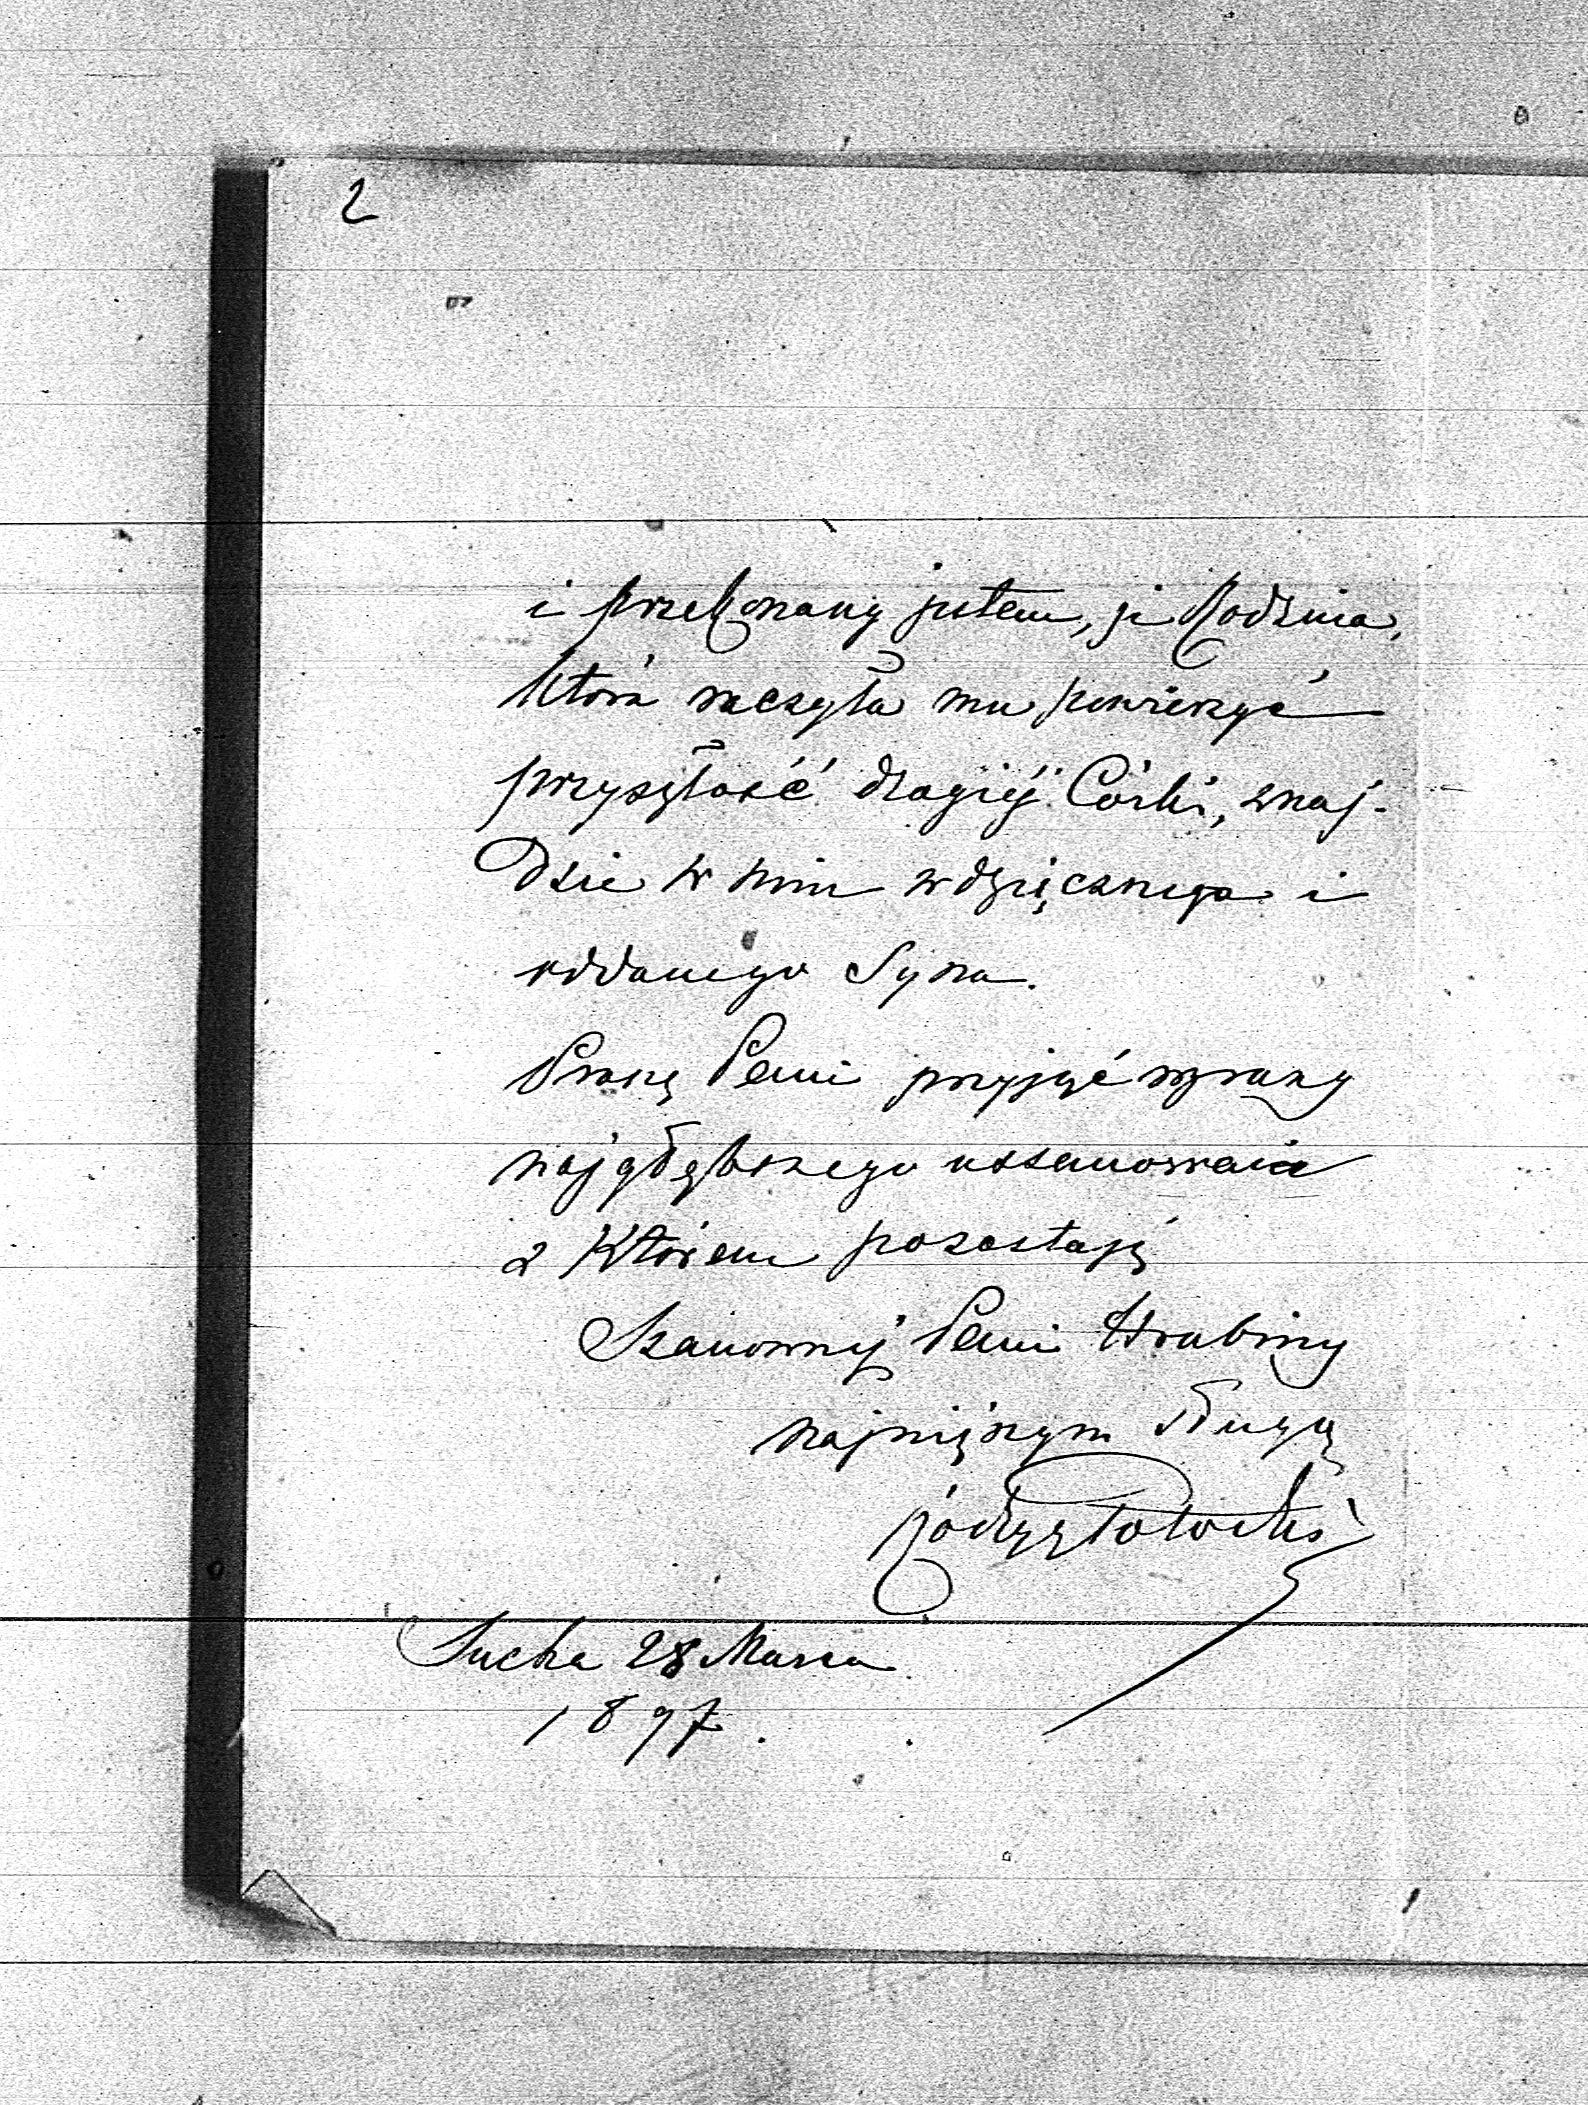 2
i przekonany jestem, że Rodzina,
która raczyła mu powierzyć
przyszłość drogiéj Córki, znaj-
dzie w nim wdzięcznego i
oddanego Syna.
Proszę Pani przyjąć wyrazy
najgłębszego uszanowania
z którem pozostaję
Szanownéj Pani Hrabiny
najniższym sługą
Potocki
Sucha 28 Marca
1897.